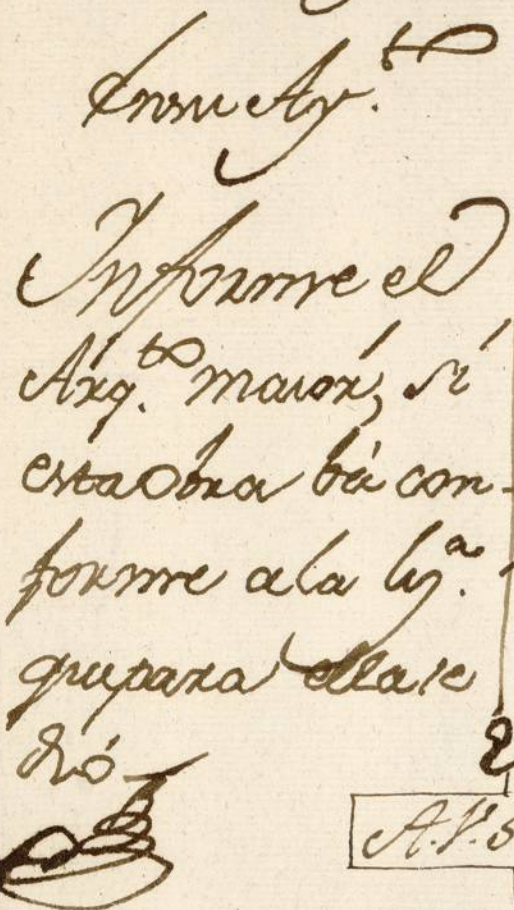 En su Ay.to
Informe el
Arq.to maior, si
esta Obra bá con-
forme a la liz.a
que para ella se
dió
A.V.S